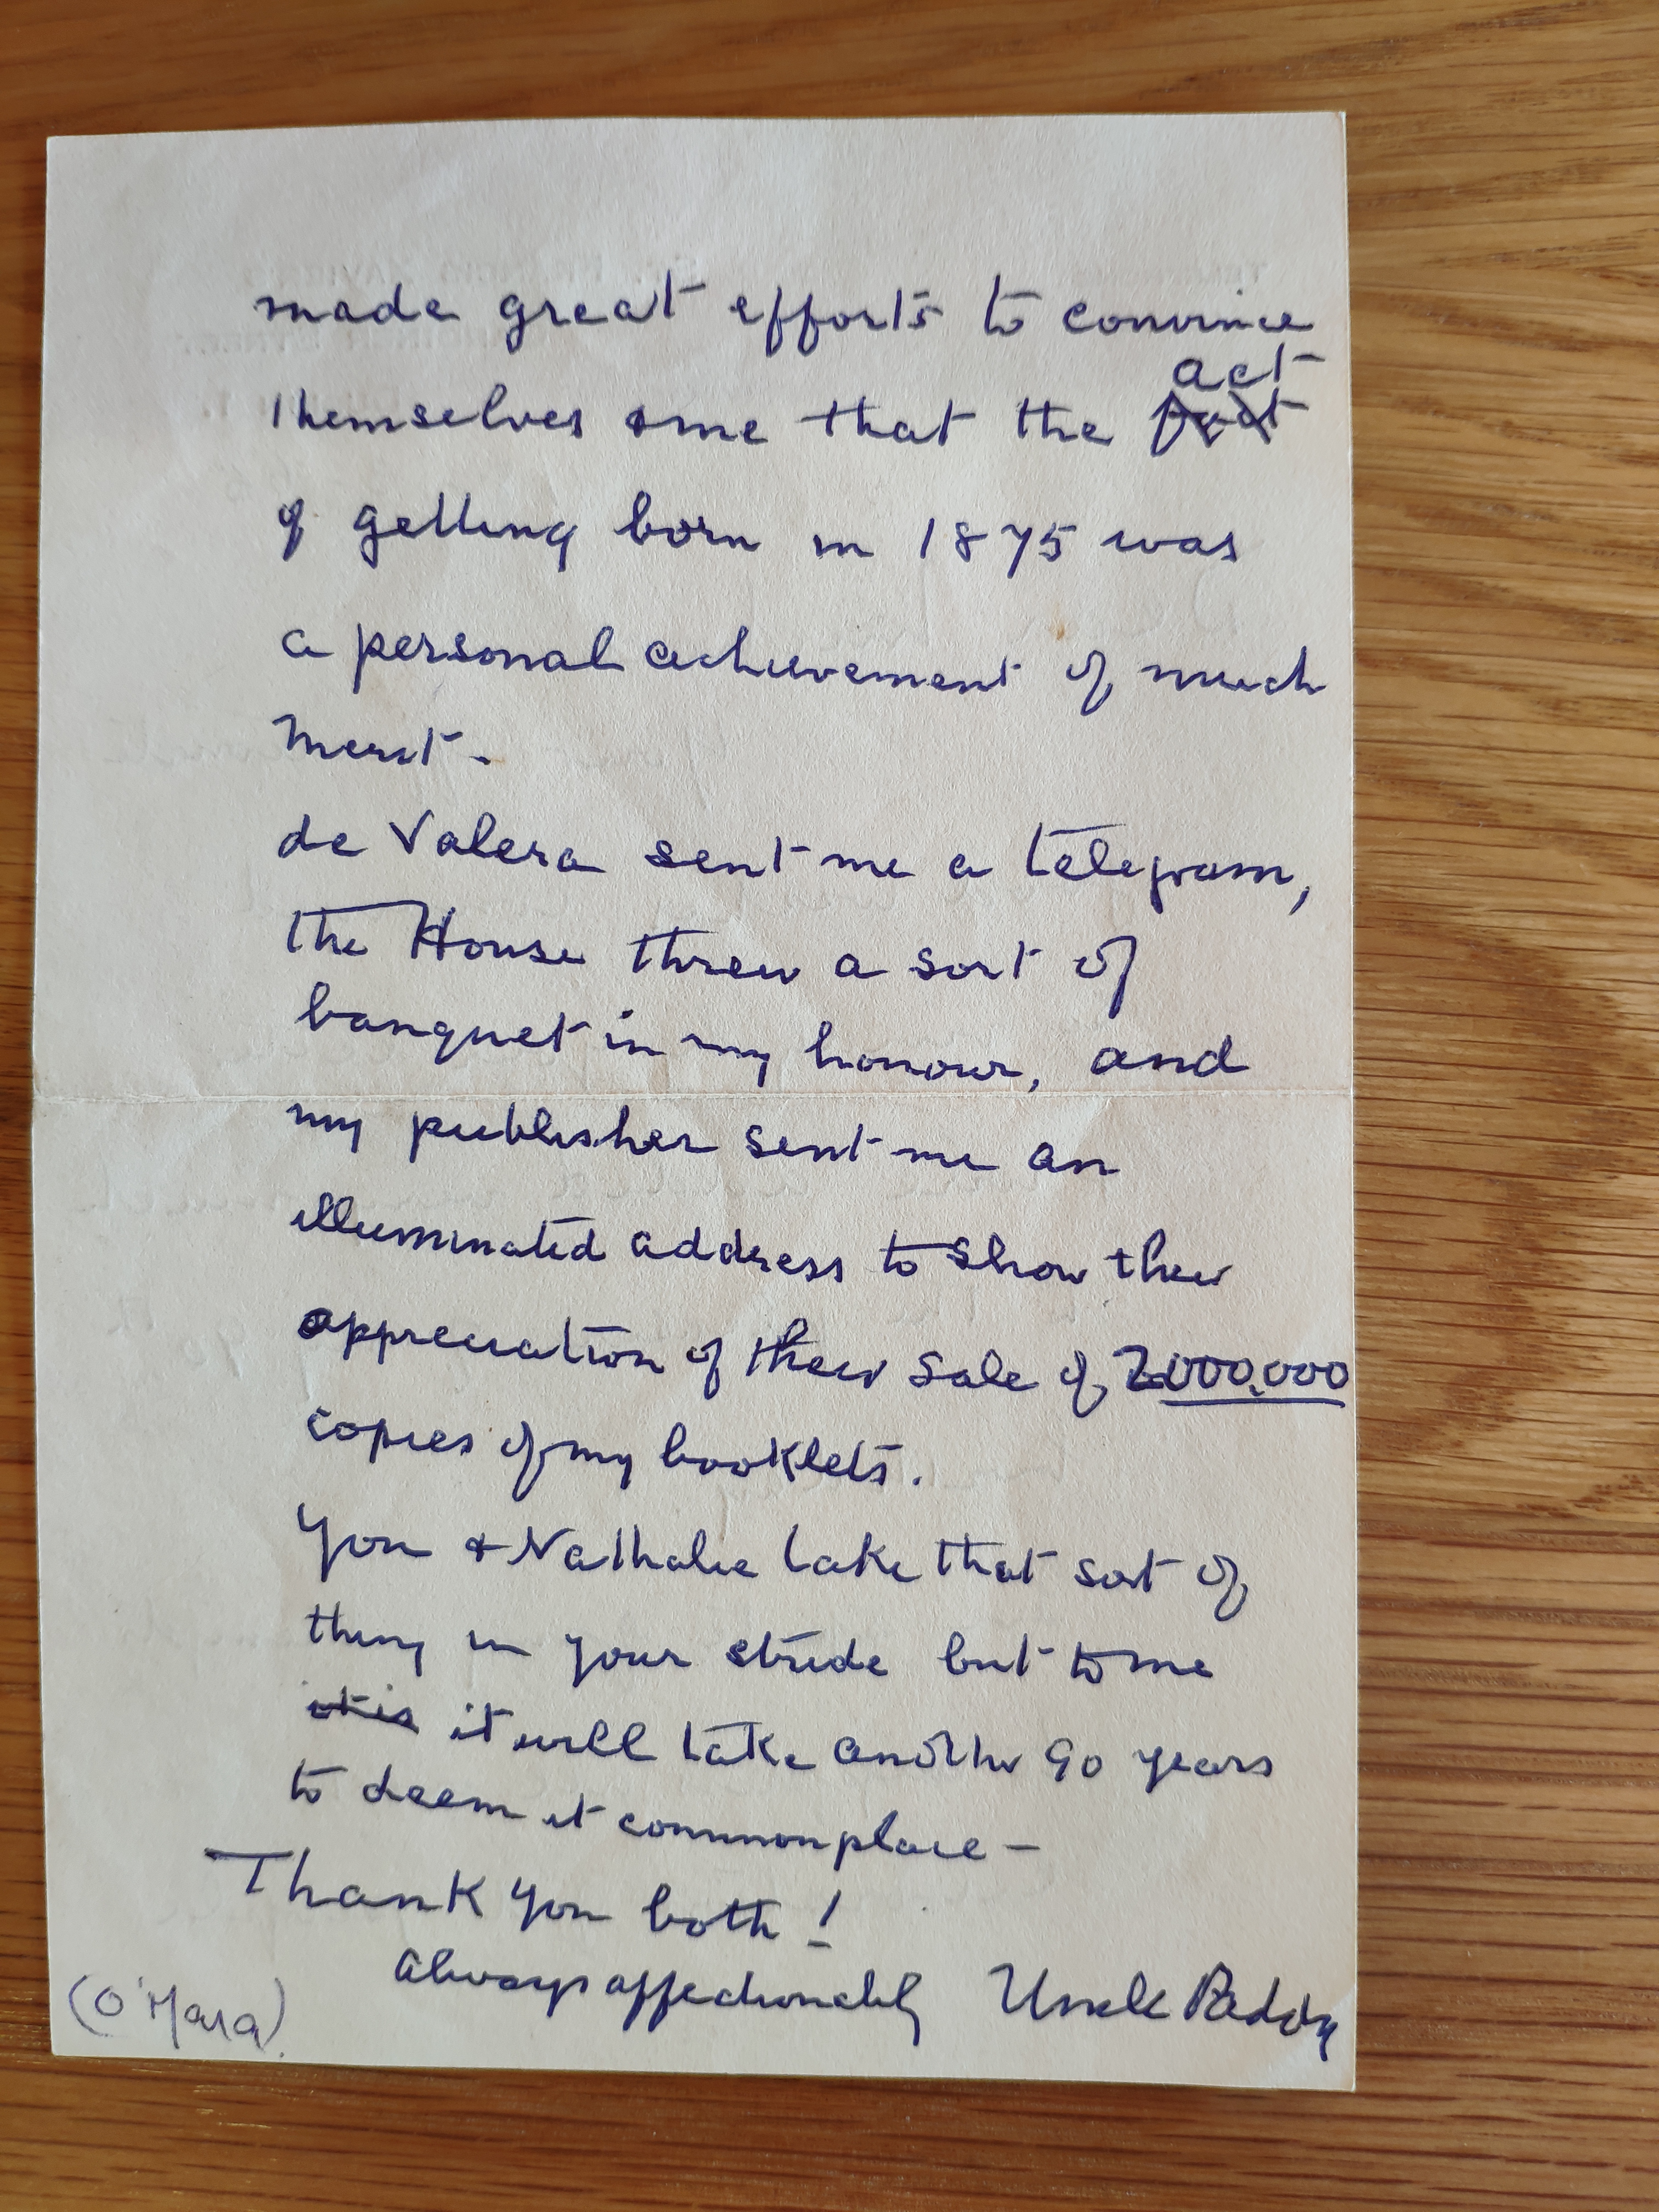 made great efforts to convince
act
themselves & me that the fact
of getting born in 1875 was
a personal achievement of much
merit -
de Valera sent me a telegram,
the House threw a sort of
banquet in my honour, and
my publisher sent me an
illuminated address to show their
appreciation of their sale of 2000,000
copies of my booklets.
You & Nathalie take that sort of
thing in your stride but to me
it is it will take another 90 years
to deem it commonplace -
Thank you both!
Always affectionately Uncle Paddy
(O'Mara)